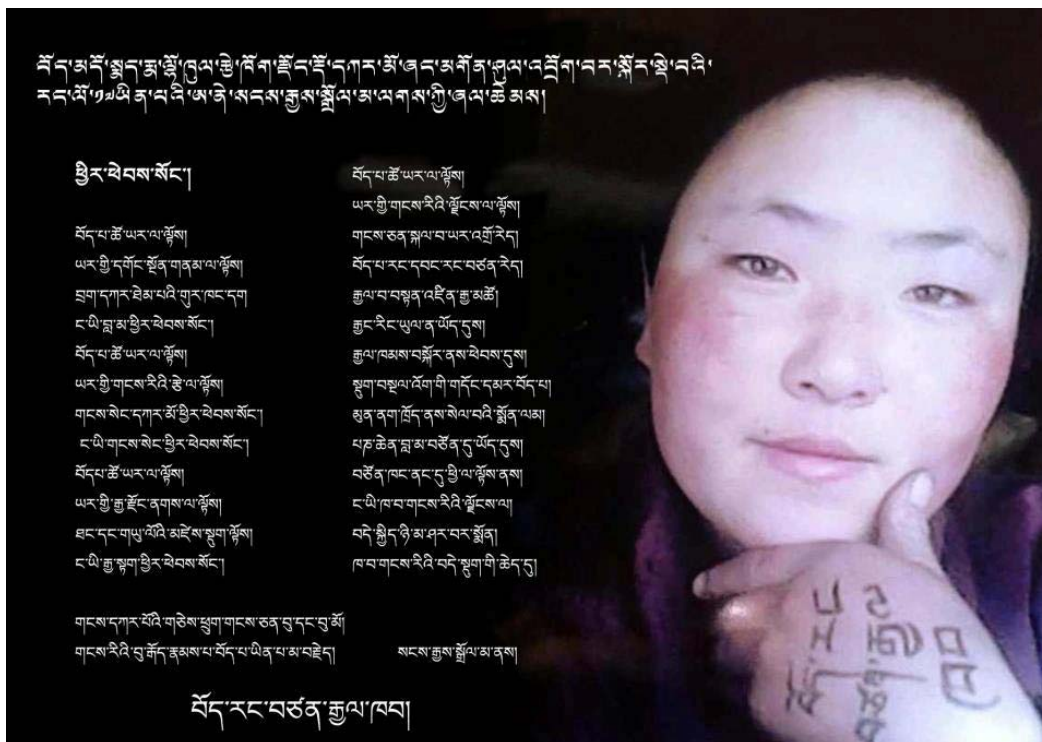 བོད་མདོ་སྨད་རྨ་ལྷོ་ཁུལ་རྩེ་ཁོག་རྫོང་རྡོ་དཀར་མོ་ཞང་མགོན་ཤུལ་འབྲོག་བར་སྐོར་སྡེ་བའི་
རང་ལོ་༡༧ཡིན་པའི་ཨ་ནེ་སངས་རྒྱས་སྒྲོལ་མ་ལགས་ཀྱི་ཞལ་ཆེམས།
ཕྱིར་ཕེབས་སོང་།
བོད་པ་ཚོ་ཡར་ལ་ལྟོས།
ཡར་གྱི་དགོང་སྔོན་གནམ་ལ་ལྟོས།
བྲག་དཀར་ཐེམ་པའི་གུར་ཁང་དག
ང་ཡི་བླ་མ་ཕྱིར་ཕེབས་སོང་།
བོད་པ་ཚོ་ཡར་ལ་ལྟོས།
ཡར་གྱི་གངས་རིའི་རྩེ་ལ་ལྟོས།
གངས་སེང་དཀར་མོ་ཕྱིར་ཕེབས་སོང་།
ང་ཡི་གངས་སེང་ཕྱིར་ཕེབས་སོང་།
བོདཔ་ཚོ་ཡར་ལ་ལྟོས།
ཡར་གྱི་རྒྱ་རྫོང་ནགས་ལ་ལྟོས།
ཐང་དང་གཡུ་ལོའི་མཛེས་སྡུག་ལྟོས།
ང་ཡི་རྒྱ་སྟག་ཕྱིར་ཕེབས་སོང་།
བོད་པ་ཚོ་ཡར་ལ་ལྟོས།
ཡར་གྱི་གངས་རིའི་ལྗོངས་ལ་ལྟོས།
གངས་ཅན་སྐལ་བ་ཡར་འགྲོ་རེད།
བོད་པ་རང་དབང་རང་བཙན་རེད།
རྒྱལ་བ་བསྟན་འཛིན་རྒྱ་མཚོ།
རྒྱང་རིང་ཡུལ་ན་ཡོད་དུས།
རྒྱལ་ཁམས་བསྐོར་ནས་ཕེབས་དུས།
སྡུག་བསྔལ་འོག་གི་གདོང་དམར་བོད་པ།
མུན་ནག་ཁྲོད་ནས་སེལ་བའི་སྨོན་ལམ།
པཎ་ཆེན་བླ་མ་བཙོན་དུ་ཡོད་དུས།
བཙོན་ཁང་ནང་དུ་ཕྱི་ལ་ལྟོས་ནས།
ང་ཡི་ཁ་བ་གངས་རིའི་ལྗོངས་ལ།
བདེ་སྐྱིད་ཉི་མ་ཤར་བར་སྨོན།
ཁ་བ་གངས་རིའི་བདེ་སྡུག་གི་ཆེད་དུ།
གངས་དཀར་པོའི་གཅེས་ཕྲུག་གངས་ཅན་བུ་དང་བུ་མོ།
གངས་རིའི་བུ་རྒོད་རྣམས་པ་བོད་པ་ཡིན་པ་མ་བརྗེད།
སངས་རྒྱས་སྒྲོལ་མ་ནས།
བོད་རང་བཙན་རྒྱལ་ཁབ།
བོད་རང་
བཙན་རྒྱལ་
ཁབ